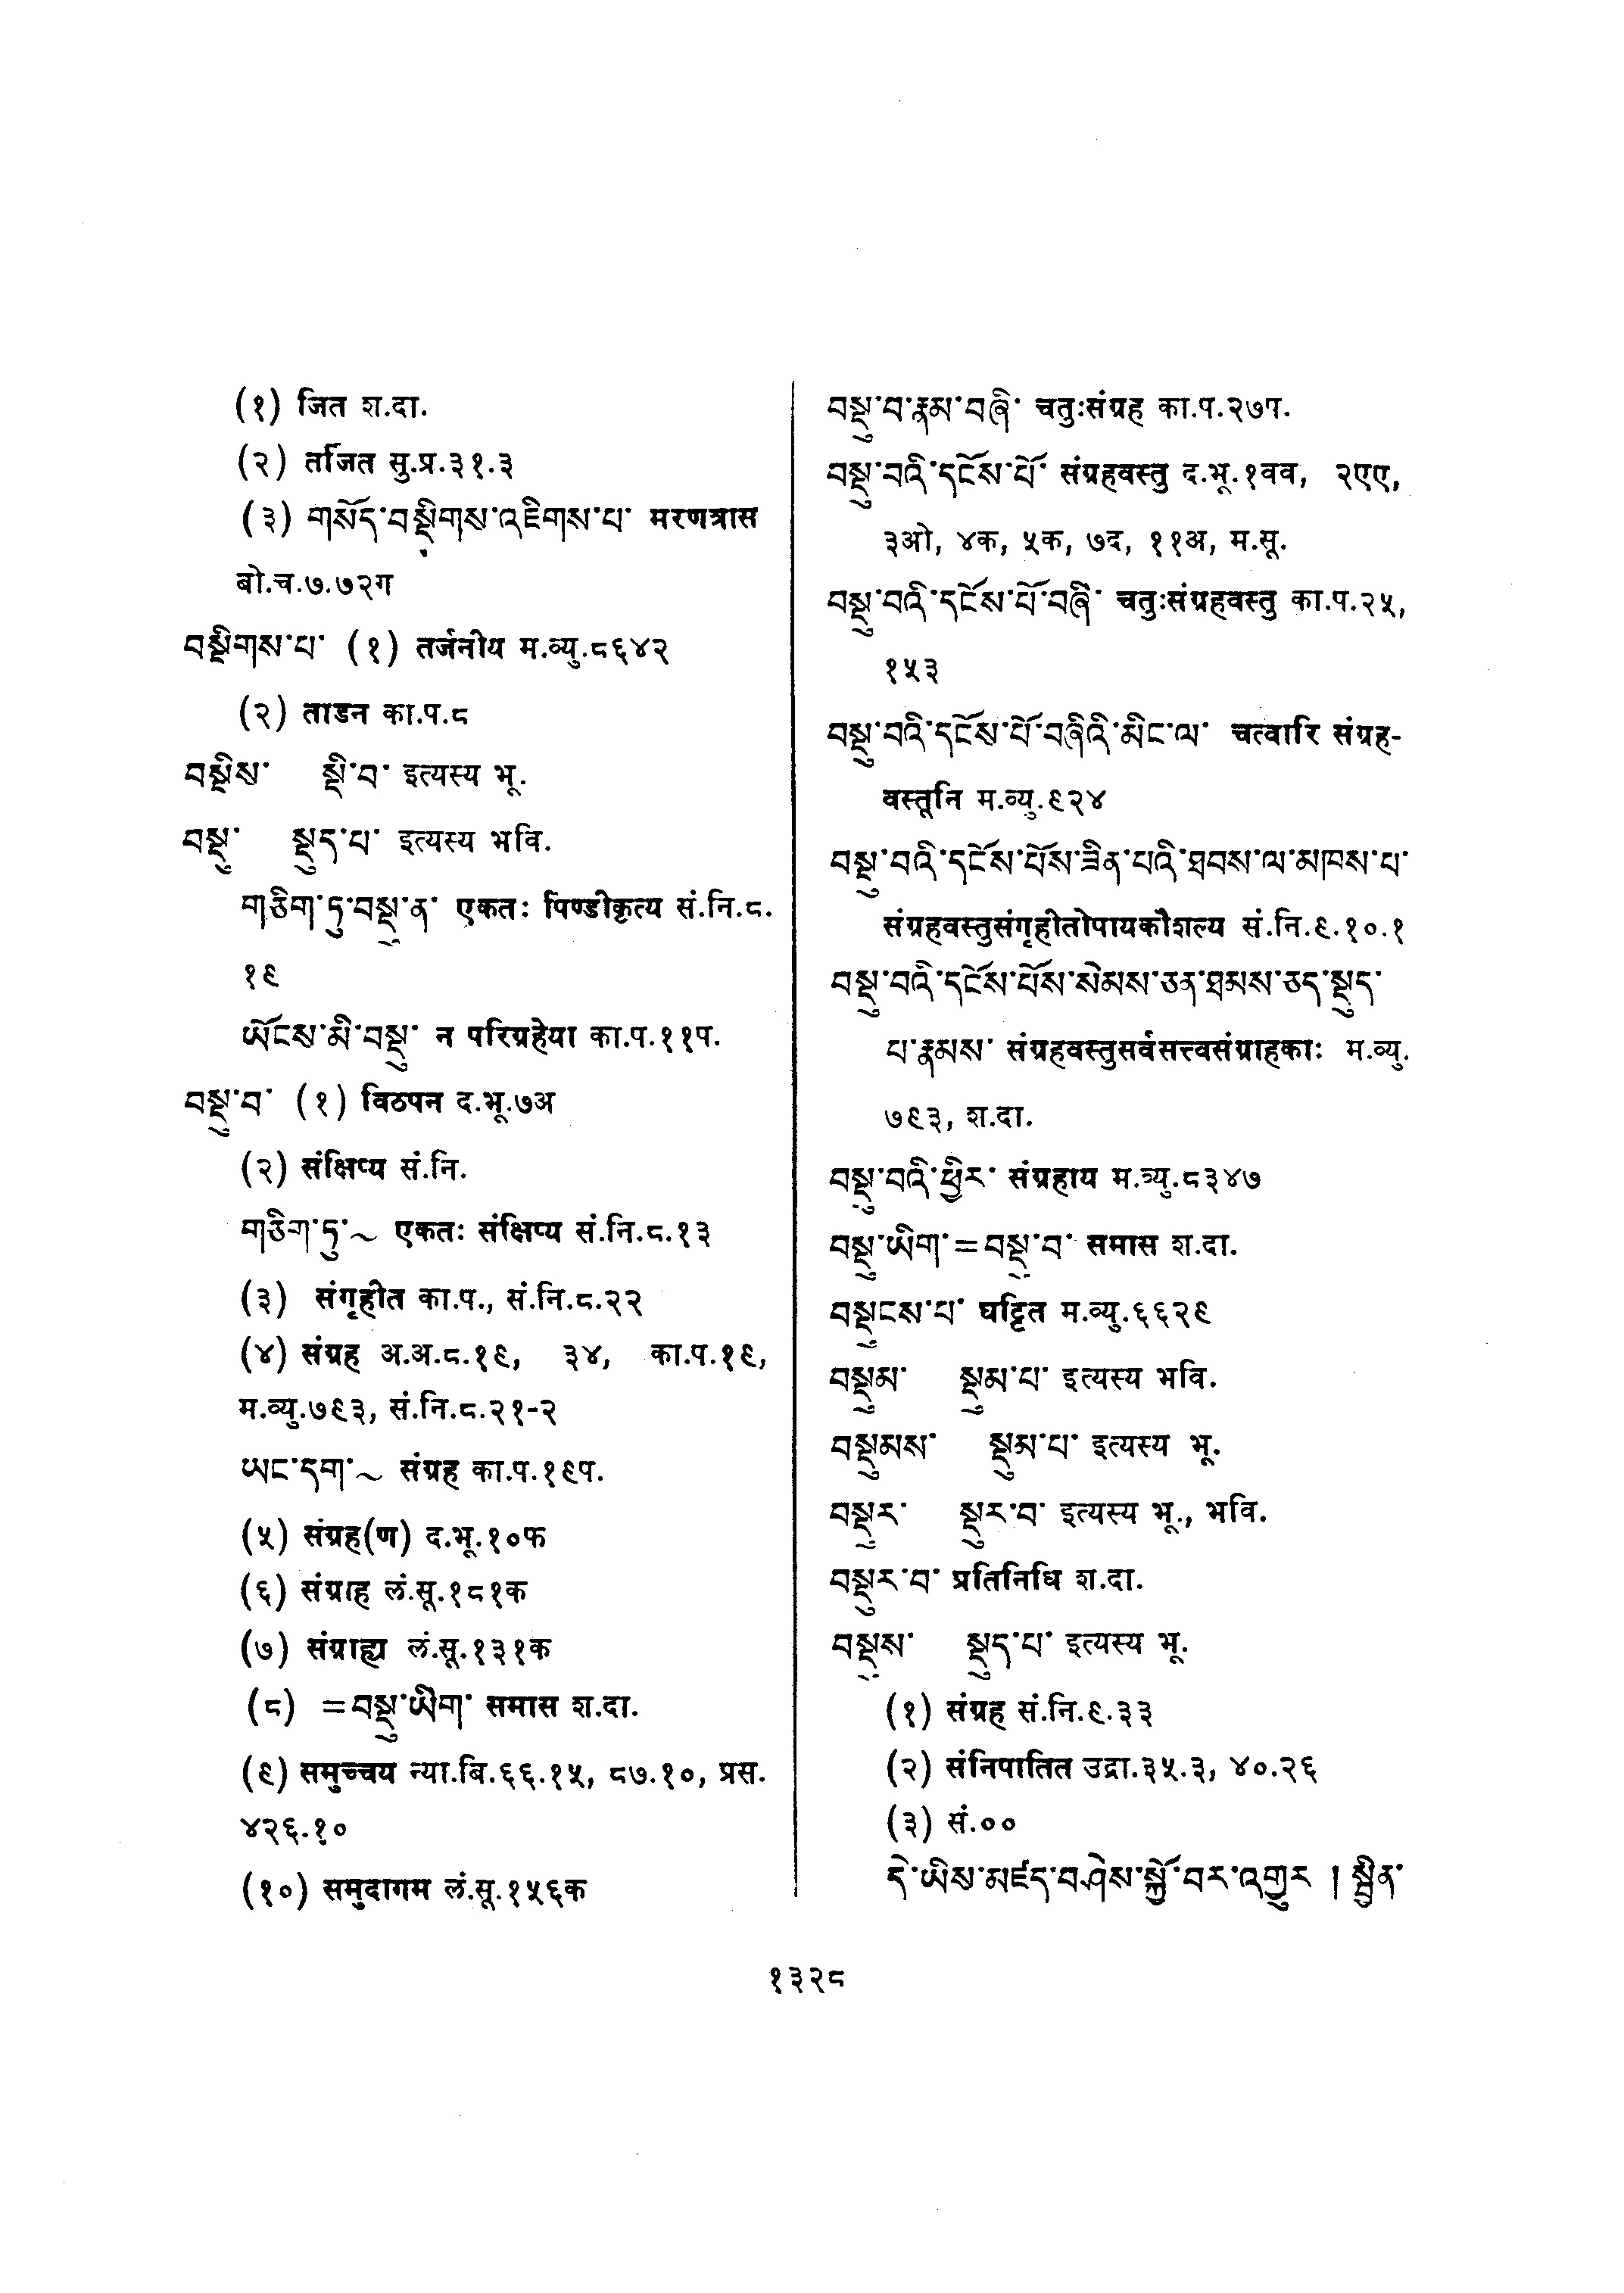 (१) जित श.दा.
(२) तर्जित सु.प्र.३१.३
(३) གསོད་བསྡིགས་འཇིགས་པ་ मरणत्रास
बो.च.७.७२ग
བསྡིགས་པ་ (१) तर्जनीय म.व्यु.८६४२
(२) ताडन का.प.८
བསྡིས་ སྡི་བ་ इत्यस्य भू.
བསྡུ་ སྡུད་པ་ इत्यस्य भवि.
གཅིག་ཏུ་བསྡུ་ན་ एकतः पिण्डीकृत्य सं.नि.८.
१९
ཡོངས་མི་བསྡུ་ न परिग्रहेया का.प.११प.
བསྡུ་བ་ (१) विठपन द.भू.७अ
(२) संक्षिप्य सं.नि.
གཅིག་ཏུ་~ एकतः संक्षिप्य सं.नि.८.१३
(३) संगृहीत का.प., सं.नि.८.२२
(४) संग्रह अ.अ.८.१९, ३४, का.प.१९,
म.व्यु.७९३, सं.नि.८.२१-२
ཡང་དག་~ संग्रह का.प.१९प.
(५) संग्रह(ण) द.भू.१०फ
(६) संग्राह लं.सू.१८१क
(७) संग्राह्य लं.सू.१३१क
(८) =བསྡུ་ཡིག་ समास श.दा.
(९) समुच्चय न्या.बि.६६.१५, ८७.१०, प्रस.
४२६.१०
(१०) समुदागम लं.सू.१५६क
བསྡུ་བ་རྣམ་བཞི་ चतुःसंग्रह का.प.२७प.
བསྡུ་བའི་དངོས་པོ་ संग्रहवस्तु द.भू.१वव, २एए,
३ओ, ४क, ५क, ७द, ११अ, म.सू.
བསྡུ་བའི་དངོས་པོ་བཞི་ चतुःसंग्रहवस्तु का.प.२५,
१५३
བསྡུ་བའི་དངོས་པོ་བཞིའི་མིང་ལ་ चत्वारि संग्रह-
वस्तूनि म.व्यु.९२४
བསྡུ་བའི་དངོས་པོས་ཟིན་པའི་ཐབས་ལ་མཁས་པ་
संग्रहवस्तुसंगृहीतोपायकौशल्य सं.नि.९.१०.१
བསྡུ་བའི་དངོས་པོས་སེམས་ཅན་ཐམས་ཅད་སྡུད་
པ་རྣམས་ संग्रहवस्तुसर्वसत्त्वसंग्राहकाः म.व्यु.
७९३, श.दा.
བསྡུ་བའི་ཕྱིར་ संग्रहाय म.व्यु.८३४७
བསྡུ་ཡིག་=བསྡུ་བ་ समास श.दा.
བསྡུངས་པ་ घट्टित म.व्यु.६६२९
བསྡུམ་ སྡུམ་པ་ इत्यस्य भवि.
བསྡུམས་ སྡུམ་པ་ इत्यस्य भू.
བསྡུར་ སྡུར་བ་ इत्यस्य भू., भवि.
བསྡུར་བ་ प्रतिनिधि श.दा.
བསྡུས་ སྡུད་པ་ इत्यस्य भू.
(१) संग्रह सं.नि.९.३३
(२) संनिपातित उद्रा.३५.३, ४०.२६
(३) सं.००
དེ་ཡིས་མཛད་བ་ཤེས་སྐྱོ་བར་འགྱུར । སྦྱིན་
१३२८